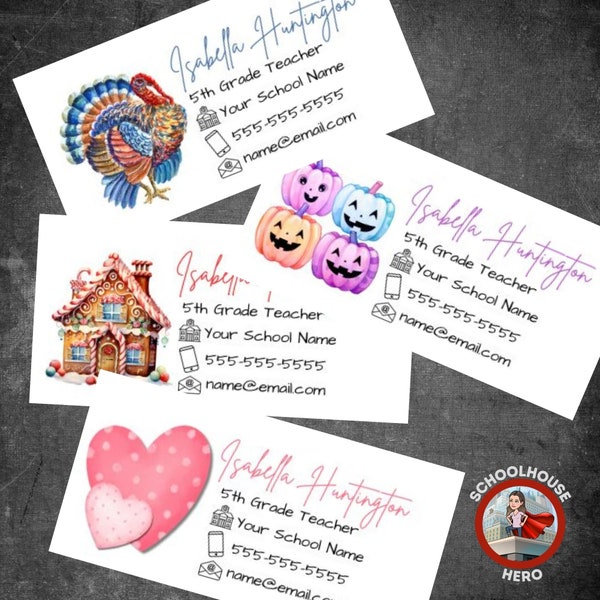 Isabella Huntington
5th Grade Teacher
Your School Name
555-555-5555
name@email.com
Isabella Huntington
5th Grade Teacher
Your School Name
555-555-5555
name@email.com
Isabella
5th Grade Teacher
Your School Name
555-555-5555
name@email.com
Isabella Huntington
5th Grade Teacher
Your School Name
555-555-5555
name@email.com
SCHOOLHOUSE
HERO